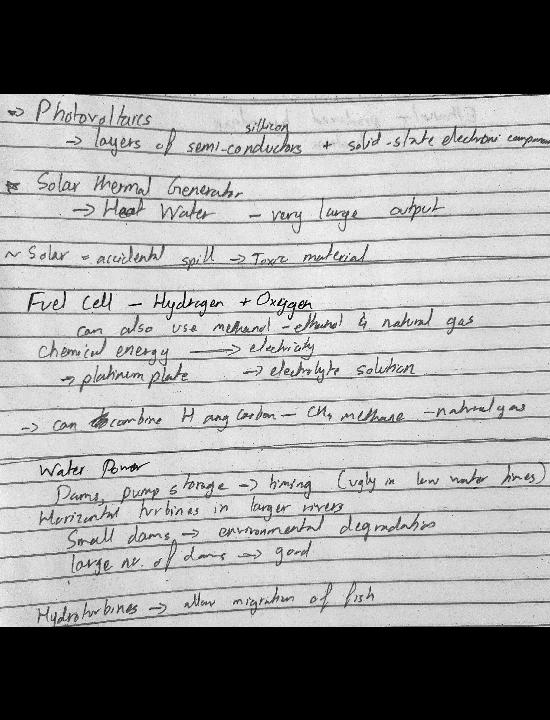 ⇒ Photovoltaics
sillicon
→ layers of semi-conductors + solid-state electronic
Solar thermal Generator
→ Heat Water - very large output
~ Solar = accidental spill → Toxic material
Fuel Cell - Hydrogen + Oxygen
can also use methanol - ethanol & natural gas
Chemical energy ⟶ electricity
→ platinum plate → electrolyte solution
→ can combine H and carbon - CH4 methane - natural gas
Water Power
Dams, pump storage → timing (ugly in low water times)
Horizontal turbines in larger rivers
Small dams → environmental degradation
large nr. of dams → good
Hydroturbines → allow migration of fish